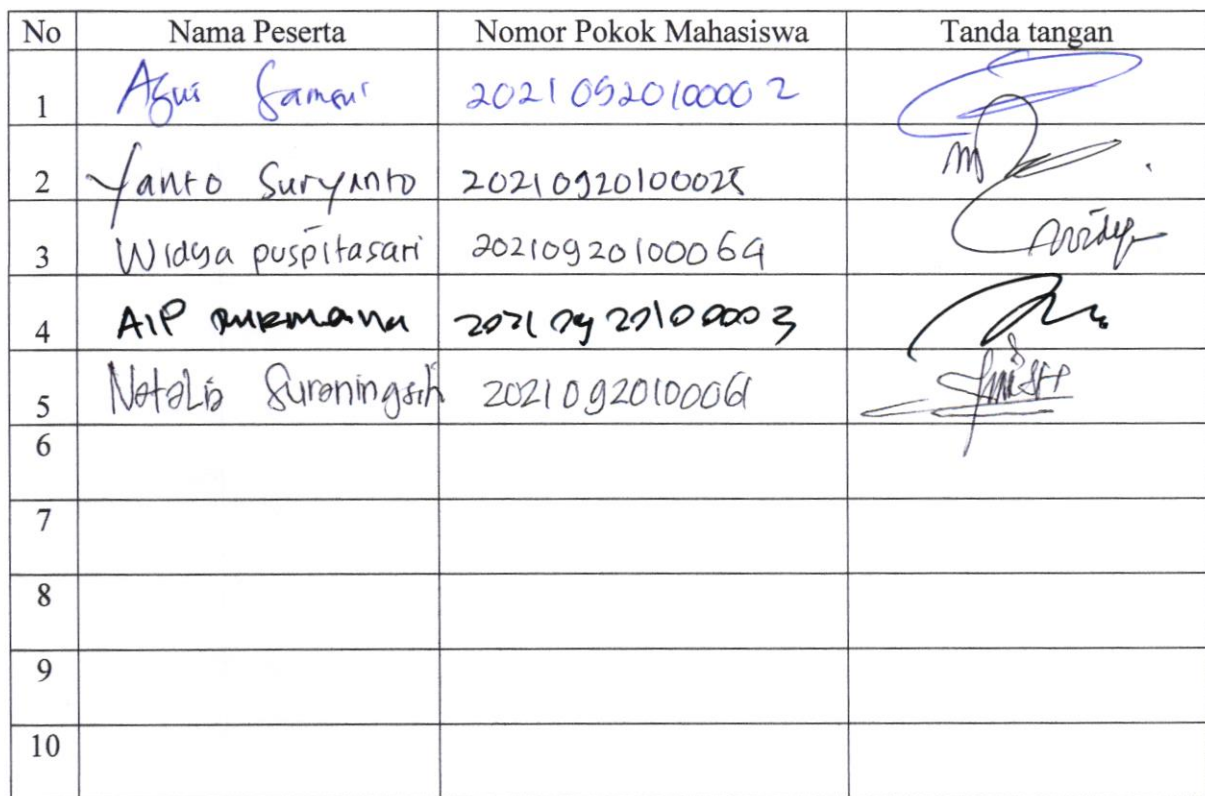 No Nama Peserta Nomor Pokok Mahasiswa Tanda tangan
1 Agus 20210920100002
2 Yanto Suryanto 20210920100025
3 Widya puspitasari 20210920100064
4 AIP 20210920100003
5 Natalia Suraningsih 20210920100061
6
7
8
9
10